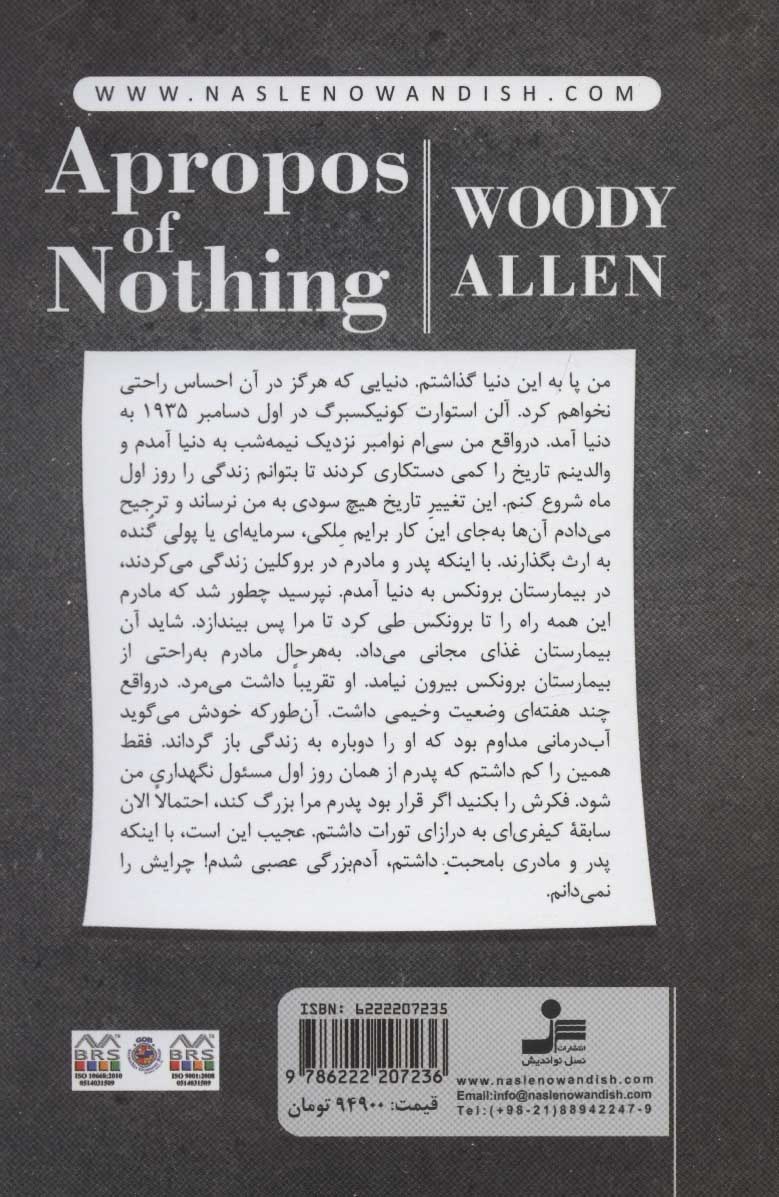 WWW.NASLENOWANDISH.COM
Apropos
of
Nothing
WOODY
ALLEN
من پا به این دنیا گذاشتم. دنیایی که هرگز در آن احساس راحتی
نخواهم کرد. آلن استوارت کونیکسبرگ در اول دسامبر ۱۹۳۵ به
دنیا آمد. درواقع من سی‌ام نوامبر نزدیک نیمه‌شب به دنیا آمدم و
والدینم تاریخ را کمی دستکاری کردند تا بتوانم زندگی را روز اول
ماه شروع کنم. این تغییرِ تاریخ هیچ سودی به من نرساند و ترجیح
می‌دادم آن‌ها به‌جای این کار برایم مِلکی، سرمایه‌ای یا پولی گُنده
به ارث بگذارند. با اینکه پدر و مادرم در بروکلین زندگی می‌کردند،
در بیمارستان برونکس به دنیا آمدم. نپرسید چطور شد که مادرم
این همه راه را تا برونکس طی کرد تا مرا پس بیندازد. شاید آن
بیمارستان غذای مجانی می‌داد. به‌هرحال مادرم به‌راحتی از
بیمارستان برونکس بیرون نیامد. او تقریباً داشت می‌مرد. درواقع
چند هفته‌ای وضعیت وخیمی داشت. آن‌طورکه خودش می‌گوید
آب‌درمانی مداوم بود که او را دوباره به زندگی باز گرداند. فقط
همین را کم داشتم که پدرم از همان روز اول مسئول نگهداری من
شود. فکرش را بکنید اگر قرار بود پدرم مرا بزرگ کند، احتمالاً الان
سابقهٔ کیفری‌ای به درازای تورات داشتم. عجیب این است، با اینکه
پدر و مادری بامحبت داشتم، آدم‌بزرگی عصبی شدم! چرایش را
نمی‌دانم.
BRS
ISO 10668:2010
0514031509
GOB
BRS
ISO 9001:2008
0514031509
ISBN: 6222207235
9 786222 207236
قیمت: ۹۴۹۰۰ تومان
انتشارات
نسل نواندیش
www.naslenowandish.com
Email:info@naslenowandish.com
Tel:(+98-21)88942247-9